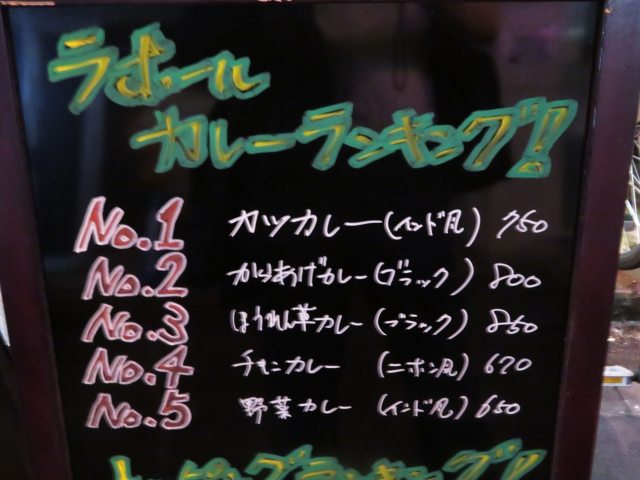 ラホール
カレーランキング!
No.1 カツカレー(インド風) 750
No.2 からあげカレー(ブラック) 800
No.3 ほうれん草カレー(ブラック) 850
No.4 チキンカレー (ニホン風) 670
No.5 野菜カレー (インド風) 650
トッピングランキング!!